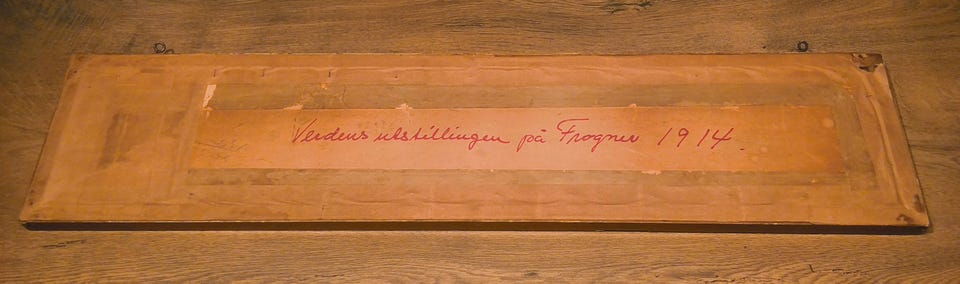 Verdensutstillingen på Frogner 1914